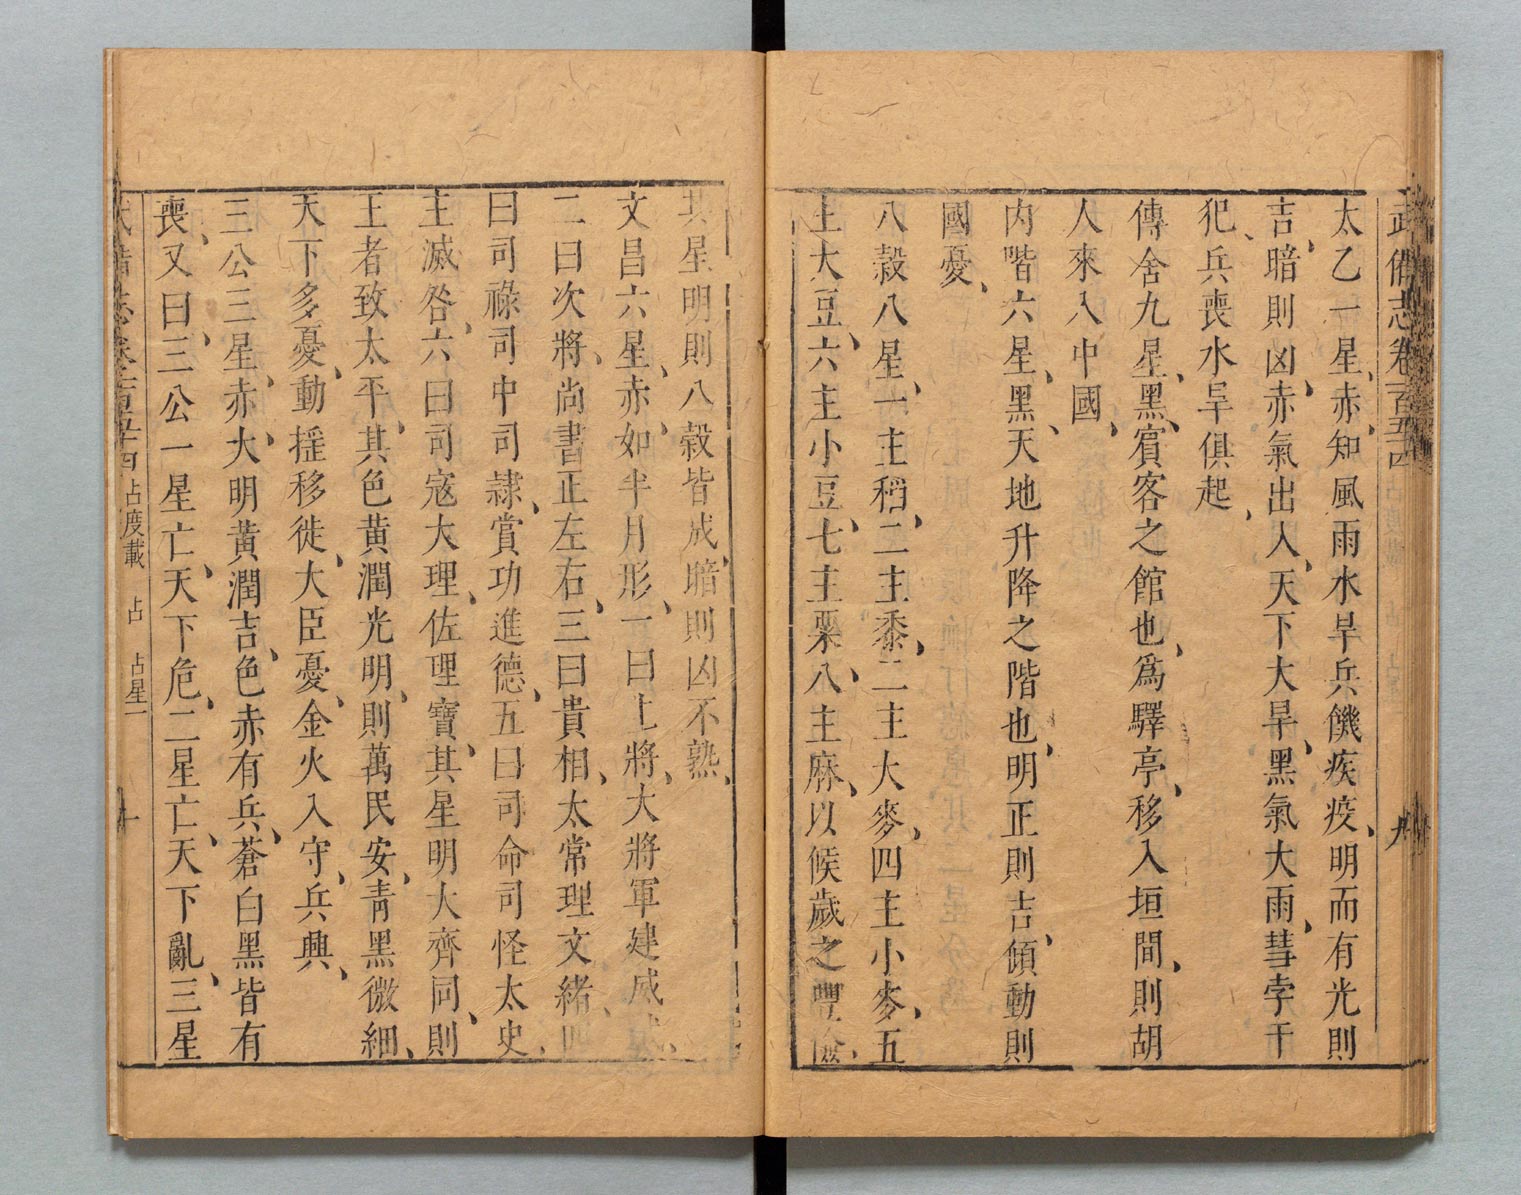 武備志卷一百五十四 占度載 占 占星一 九
太乙一星、赤、知風雨水旱兵饑疾疫、明而有光則
吉、暗則凶、赤氣出入、天下大旱、黑氣大雨、彗孛干
犯、兵喪水旱俱起、
傳舍九星、黑、賓客之館也、爲驛亭、移入垣間、則胡
人來入中國、
內階六星、黑、天地升降之階也、明正則吉、傾動則
國憂、
八穀八星、一主稻、二主黍、二主大麥、四主小麥、五
主大豆、六主小豆、七主粟、八主麻、以候歲之豐儉、
其星明則八穀皆成、暗則凶不熟、
文昌六星、赤、如半月形、一曰上將、大將軍建威武、
二曰次將、尚書正左右、三曰貴相、太常理文緒、四
曰司祿司中司隷、賞功進德、五曰司命司怪太史、
主滅咎、六曰司寇大理、佐理寶、其星明大齊同、則
王者致太平、其色黃潤光明、則萬民安、靑黑微細、
天下多憂、動搖移徙、大臣憂、金火入守、兵興、
三公三星、赤、大明黃潤吉、色赤有兵、蒼白黑皆有
喪、又曰、三公一星亡、天下危、二星亡、天下亂、三星
武備志卷一百五十四 占度載 占 占星一 十